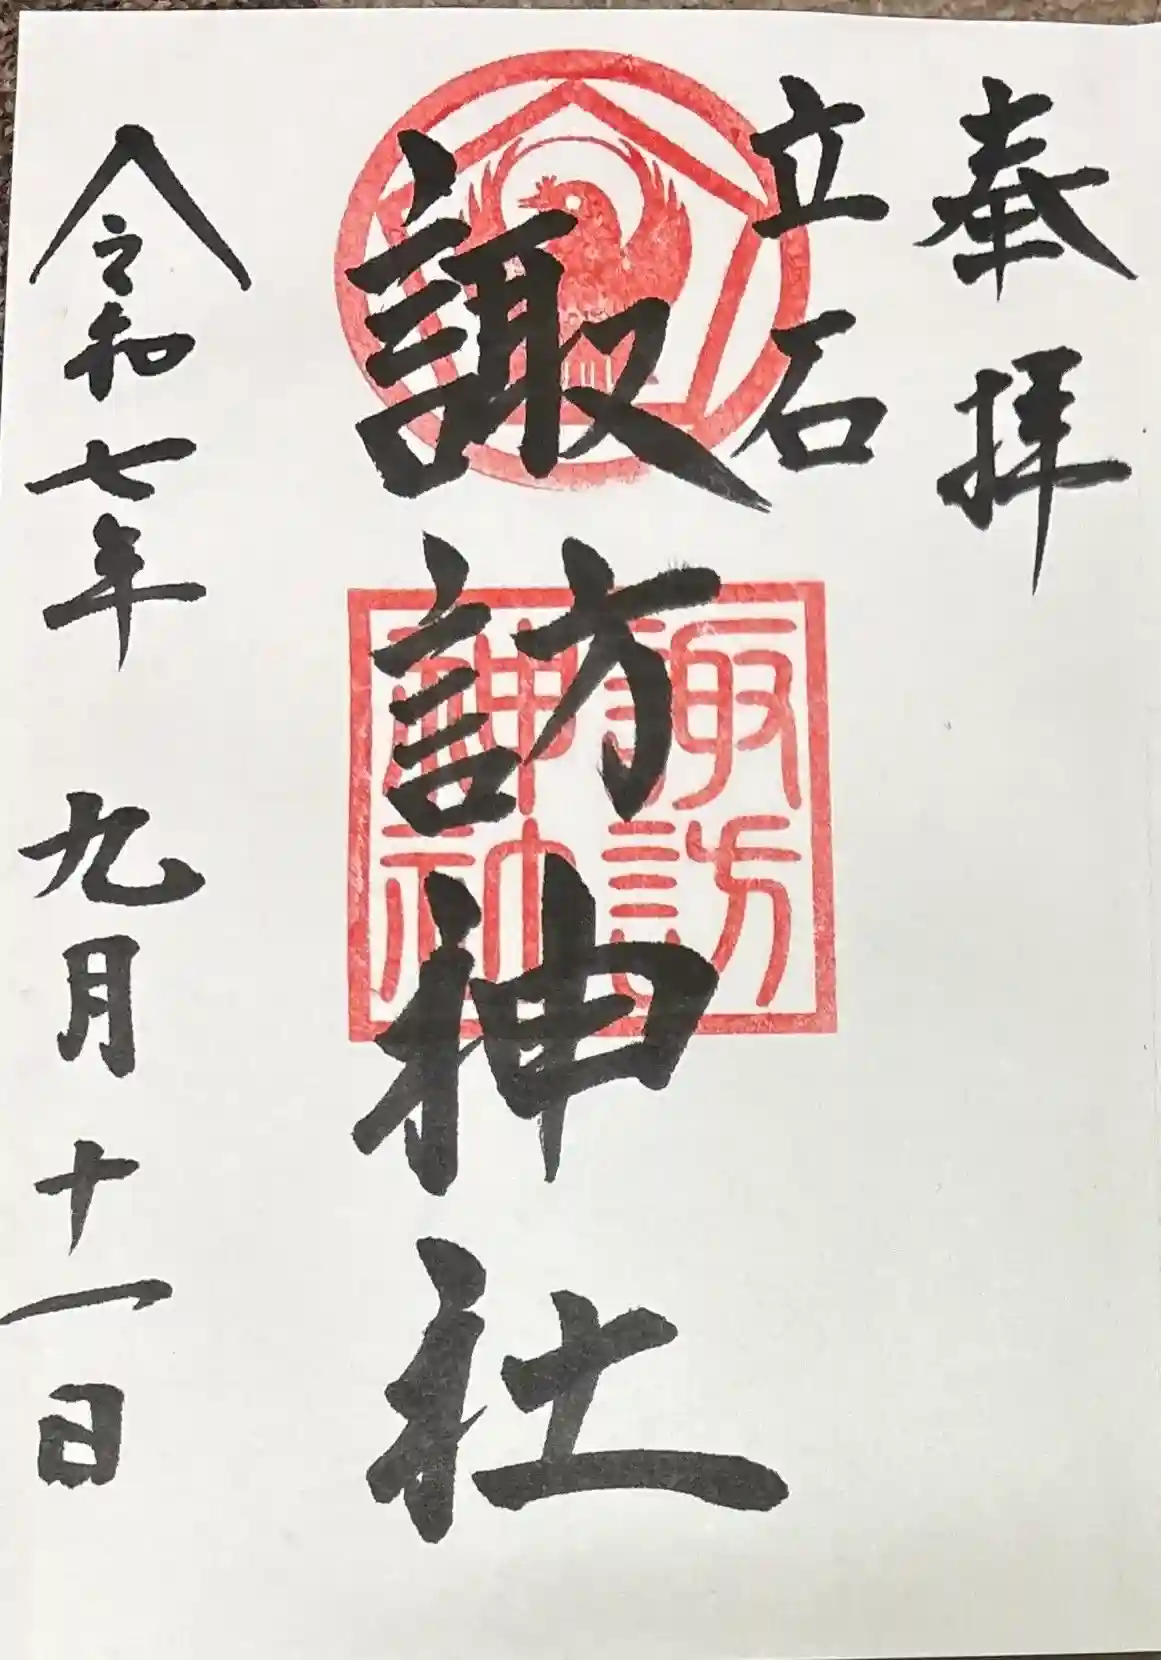 奉拝
立石
諏訪神社
諏訪
神社
令和七年 九月十一日